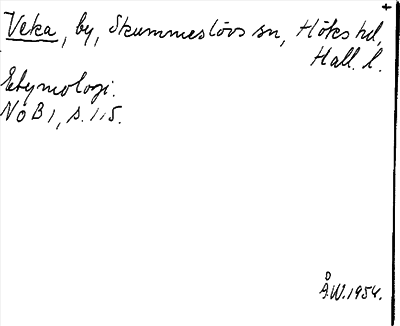 Veka, by, Skummeslövs sn, Höks hd,
Hall. l.
Etymologi.
NoB 1, s. 115.
Å.W. 1954.